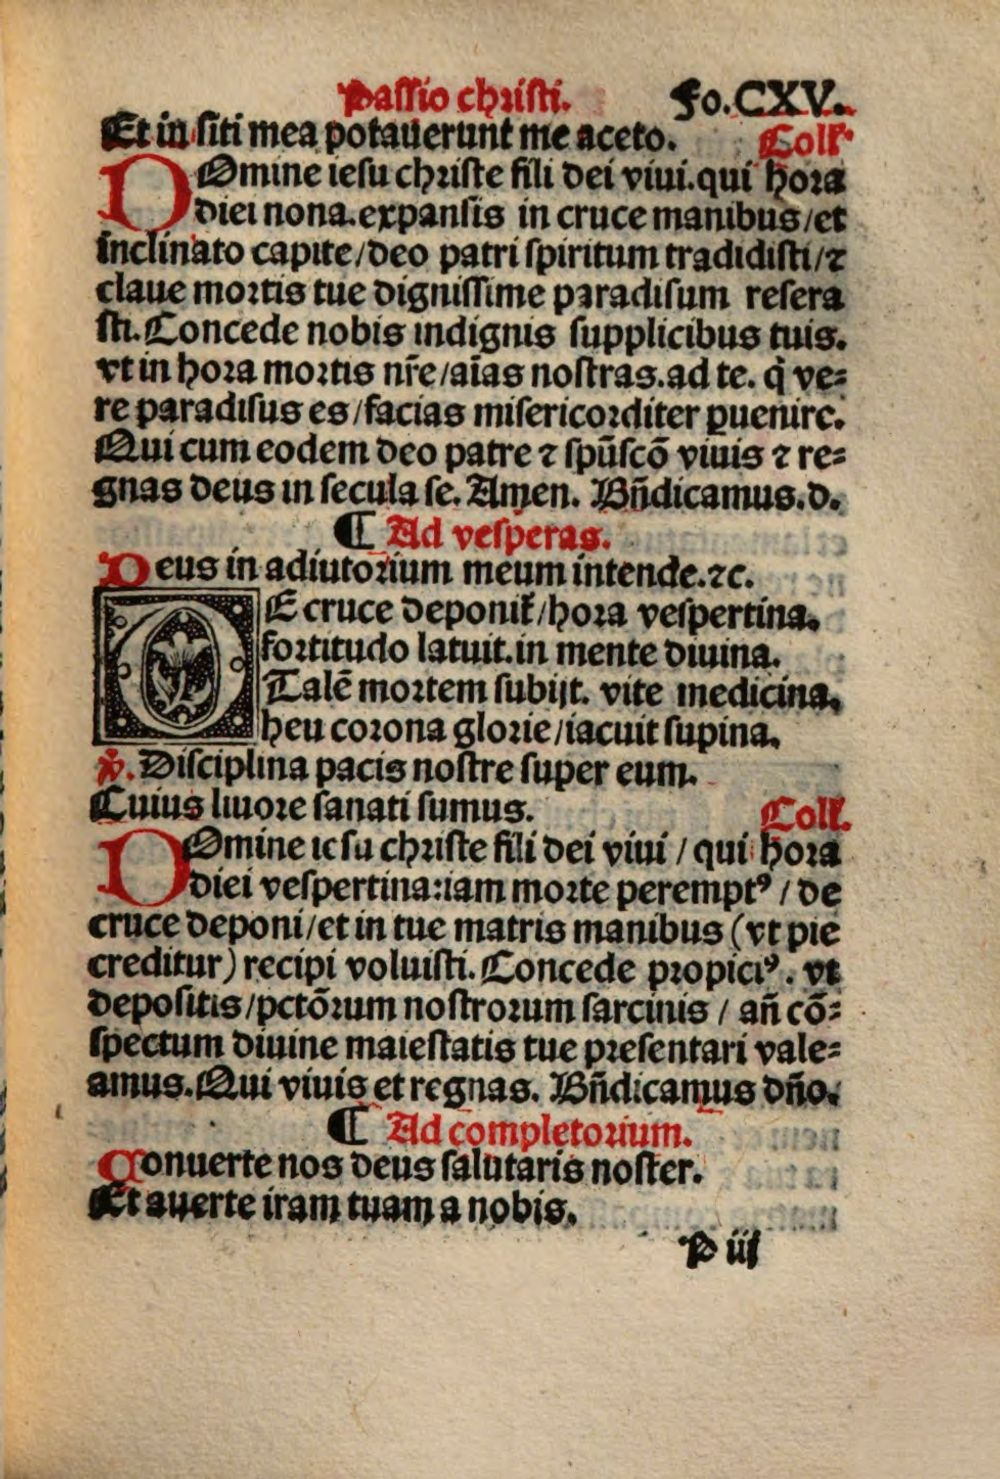 Passio christi. Fo.CXV.
Et in siti mea potauerunt me aceto. Coll'
DOmine iesu christe fili dei viui.qui hora
diei nona.expansis in cruce manibus/et
inclinato capite/deo patri spiritum tradidisti/⁊
claue mortis tue dignissime paradisum resera
sti.Concede nobis indignis supplicibus tuis.
vt in hora mortis nr̄e/aīas nostras.ad te. q̇ ve=
re paradisus es/facias misericorditer ꝑuenire.
Qui cum eodem deo patre ⁊ spūscō viuis ⁊ re=
gnas deus in secula se. Amen. Bn̄dicamus.d.
¶ Ad vesperas.
Deus in adiutorium meum intende.⁊c.
DE cruce deponit̛/hora vespertina.
fortitudo latuit.in mente diuina.
Talē mortem subijt. vite medicina.
heu corona glorie/iacuit supina.
℣. Disciplina pacis nostre super eum.
Cuius liuore sanati sumus. Coll'.
DOmine iesu christe fili dei viui / qui hora
diei vespertina:iam morte perempt⁹ / de
cruce deponi/et in tue matris manibus (vt pie
creditur) recipi voluisti.Concede propici⁹. vt
depositis/pctōrum nostrorum sarcinis / an̄ cō=
spectum diuine maiestatis tue presentari vale=
amus.Qui viuis et regnas. Bn̄dicamus dn̄o.
¶ Ad completorium.
Conuerte nos deus salutaris noster.
Et auerte iram tuam a nobis.
P iij